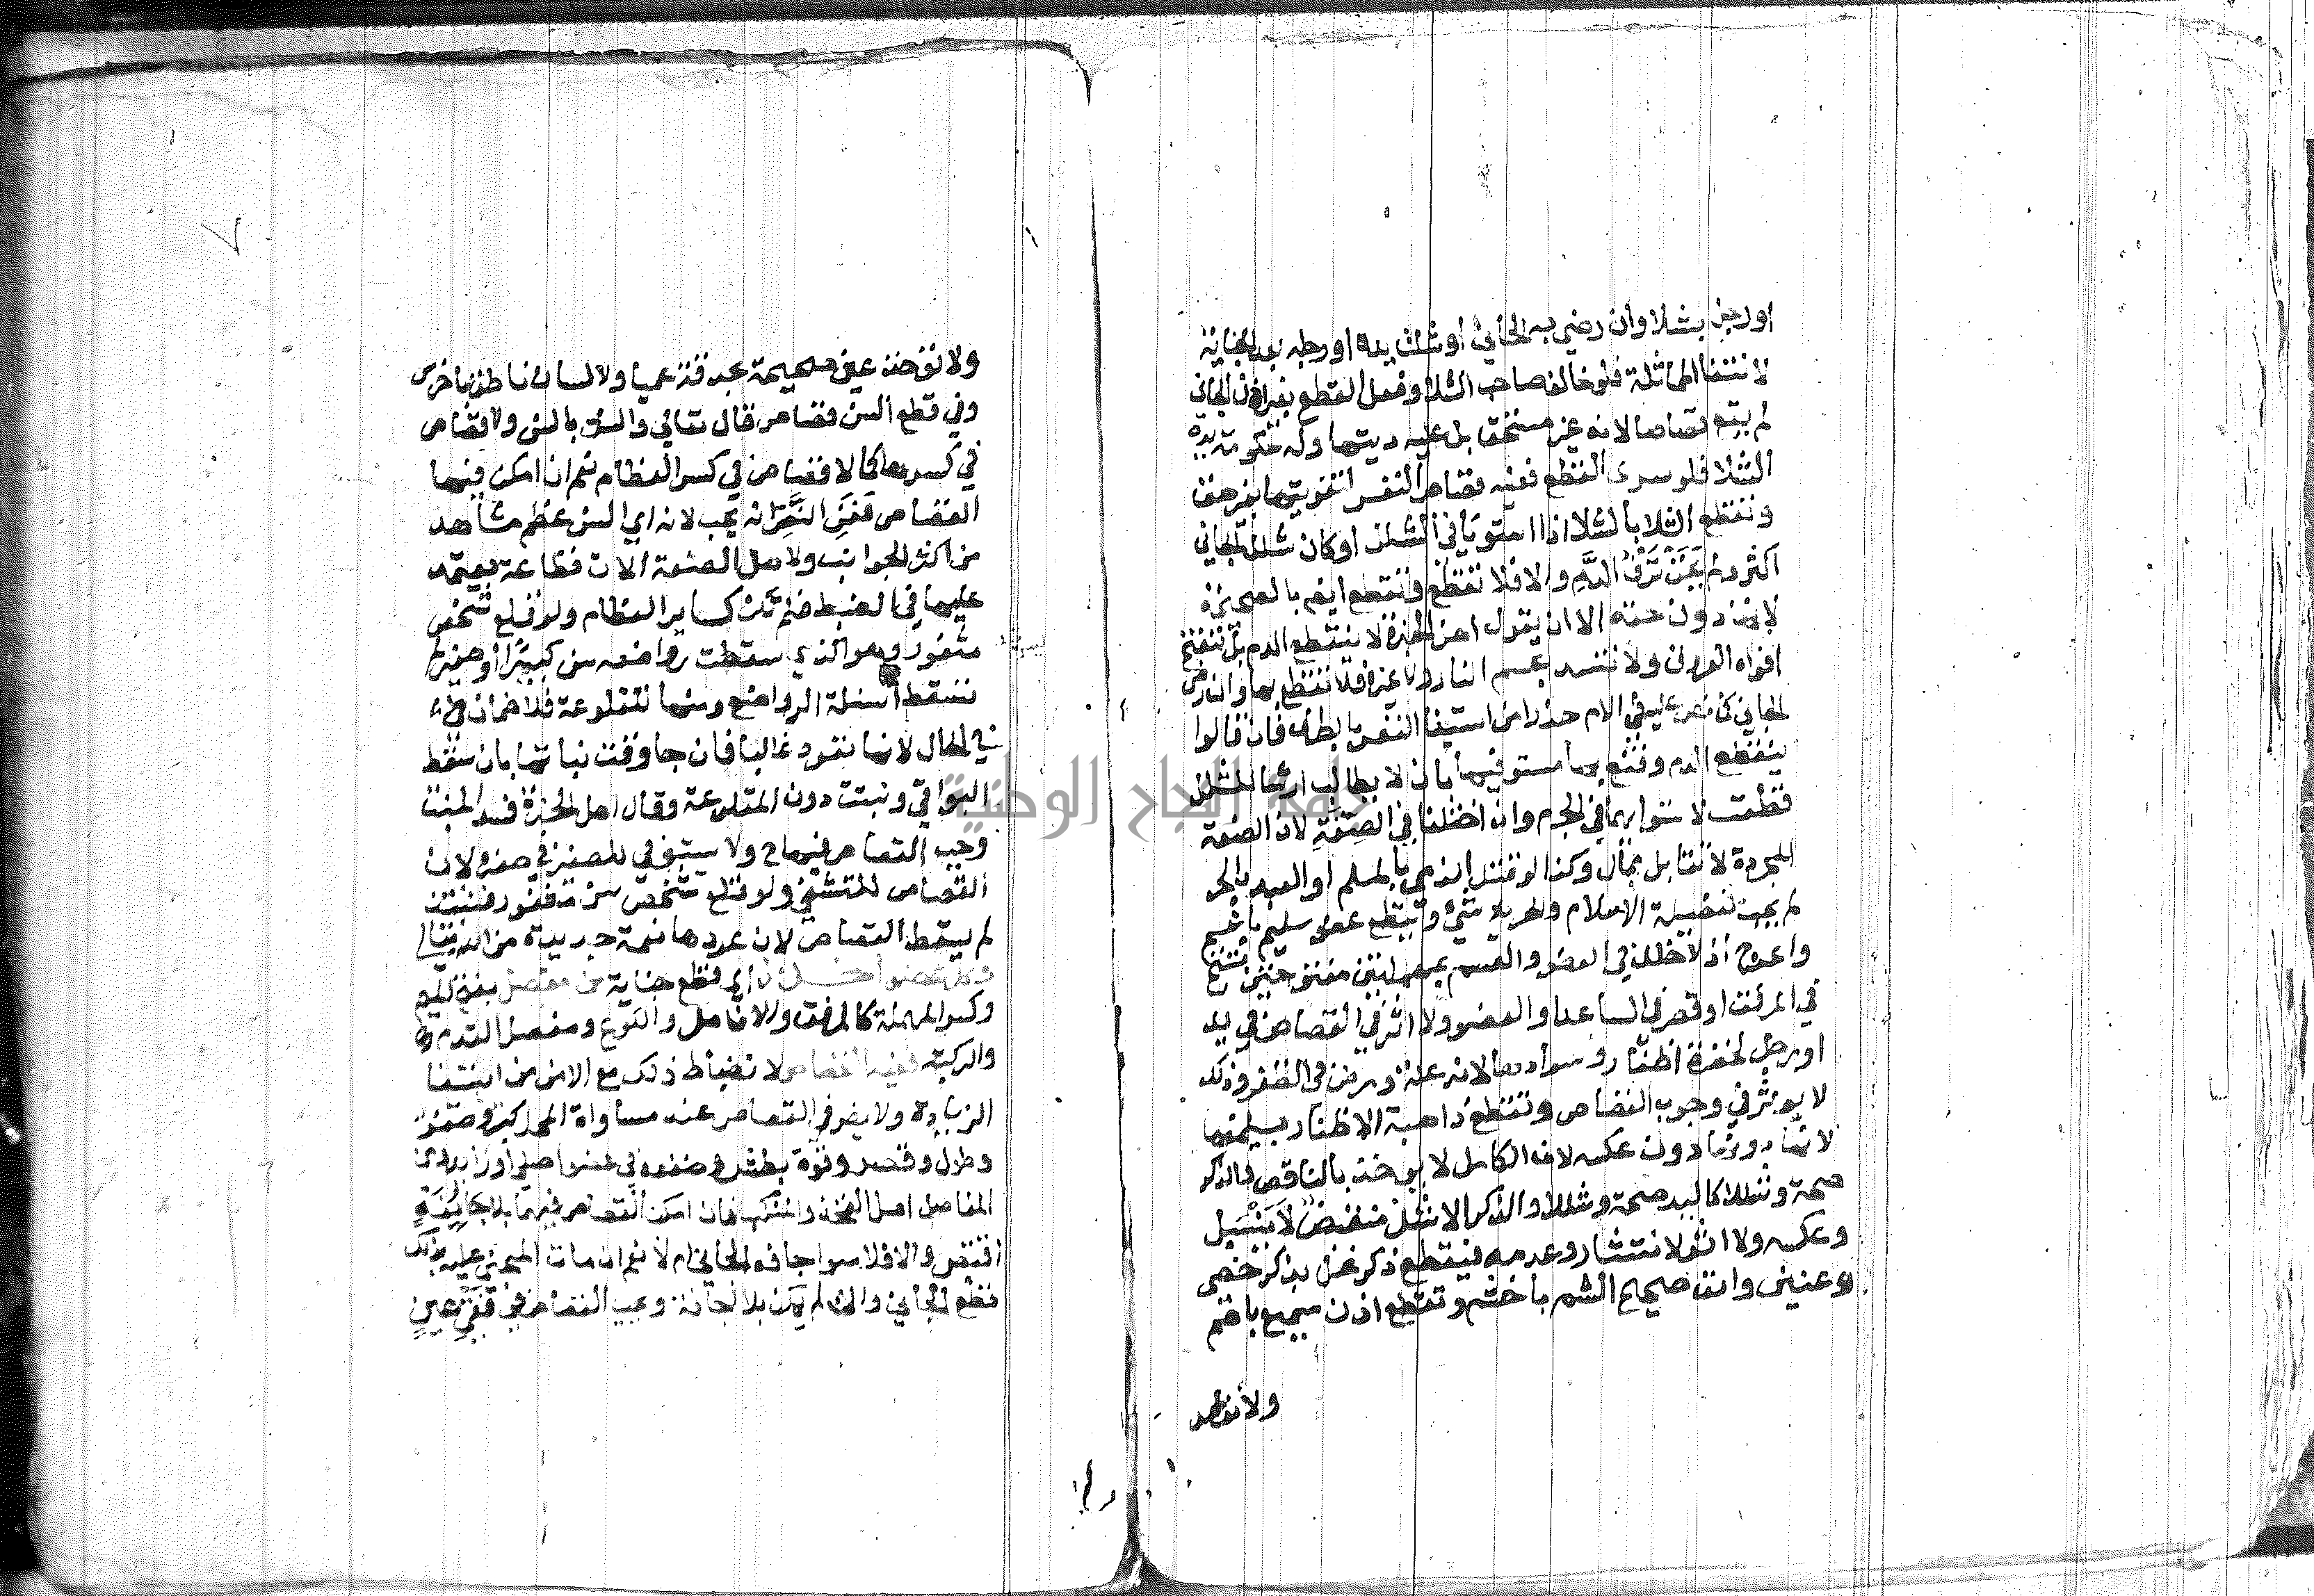 او رجل بشلا وان رضي به الجاني او شلت يده او رجله بعد الجناية
لانتفا المماثلة فلو خالف صاحب الشلا وفعل القطع بغير اذن الجاني
لم يقع قصاصا لانه غير مستحق بل عليه ديتها وله حكومة يده
الشلا فلو سرى القطع فعليه قصاص النفس لتفويتها بغير حق
وتقطع الشلا بالشلا اذا استويا في الشلل او كان شلل الجاني
اكثر ولم يخف نزف الدم والا فلا تقطع وتقطع ايضا بالصحيحة
لانها دون حقه الا ان يقول اهل الخبرة لا ينقطع الدم بل تنفتح
افواه العروق ولا تنسد بحسم النار ولا غيره فلا تقطع بها وان رضي
الجاني كما نص عليه في الام حذرا من استيفا النفس بالطرف فان قالوا
ينقطع الدم وقنع بها مستوفيها بان لا يطالب بارش للشلل
قطعت لاستوائهما في الجرم وان اختلفا في الصفة لان الصفة
المجردة لا تقابل بمال وكذا لو قتل الذمي بالمسلم او العبد بالحر
لم يجب لفضيلة الاسلام والحرية شيء ويقطع عضو سليم باعسم
واعرج اذ لا خلل في العضو والعسم بمهملتين مفتوحتين تشنج
في المرفق او قصر في الساعد او العضو ولا اثر في القصاص في يد
او رجل لخضرة اظفار وسوادها لانه علة ومرض في الظفر وذلك
لا يوثر في وجوب القصاص وتقطع ذاهبة الاظفار بسليمتها
لانها دونها دون عكسه لان الكامل لا يوخذ بالناقص والذكر
صحة وشللا كاليد صحة وشللا والذكر الاشل منقبض لا ينبسل
وعكسه ولا اثر لانتشار وعدمه فيقطع ذكر فحل بذكر خصي
وعنين وانف صحيح الشم باخشم وتقطع اذن سميع باصم
ولا توخذ
ولا توخذ عين صحيحة بحدقة عميا ولا لسان ناطق باخرس
وفي قطع السن قصاص قال تعالى والسن بالسن ولا قصاص
في كسرها كما لا قصاص في كسر العظام نعم ان امكن فيها
القصاص فعن النص انه يجب لانه اي السن عظم مشاهد
من اكثر الجوانب ولاهل الصنعة الات قطاعة يعتمد
عليها في الضبط فلم تكن كساير العظام ولو قلع شخص
مثغور وهو الذي سقطت رواضعه سن كبير او صغير لم
تسقط اسنانه الرواضع ومنها المقلوعة فلا ضمان
في الحال لانها تعود غالبا فان جا وقت نباتها بان سقط
البواقي ونبتت دون المقلوعة وقال اهل الخبرة فسد المنبت
وجب القصاص فيها ح ولا يستوفي للصغير في صغره لان
القصاص للتشفي ولو قلع شخص سن مثغور فنبتت
لم يسقط القصاص لان عودها نعمة جديدة من الله تعالى
وكل عضو اخذ اي قطع جناية من مفصل بفتح الميم
وكسر المهملة كالمرفق والانامل والكوع ومفصل القدم
والركبة ففيه القصاص لانضباط ذلك مع الامن من استيفا
الزيادة ولا يضر في القصاص عند مساواة المحل كبر وصغر
وطول وقصر وقوة بطش وضعفه في عضو اصلي او زايد ومن
المفاصل اصل الفخذ والمنكب فان امكن القصاص فيهما بلا اجافة
اقتص والا فلا سوا اجافه الجاني ام لا نعم ان مات المجني عليه بذلك
قطع الجاني وان لم يمكن بلا اجافة ويجب القصاص في فقي عين